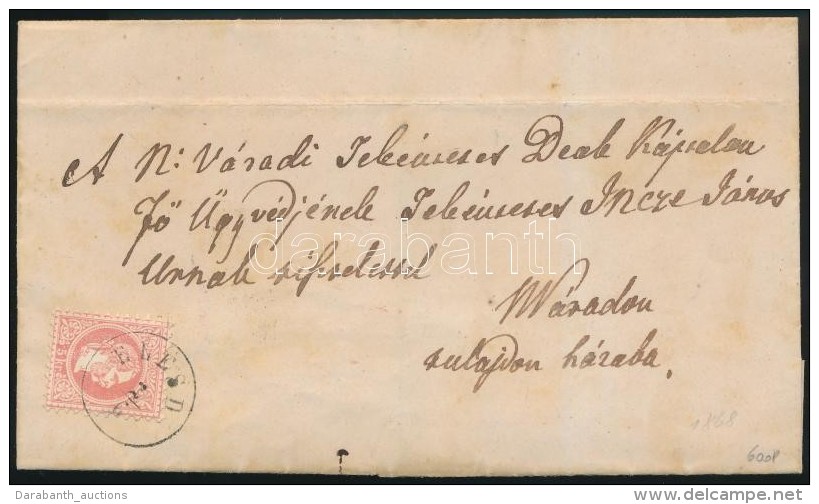 A N: Váradi Tekéntetes Deák Káptalan
Fő Ügyvédjének Tekéntetes Incze János
Urnak tisztelettel
NVáradon
tulajdon házaba.
ELESD
darabanth
1868
600P
Darabanth_auctions
www.delcampe.net